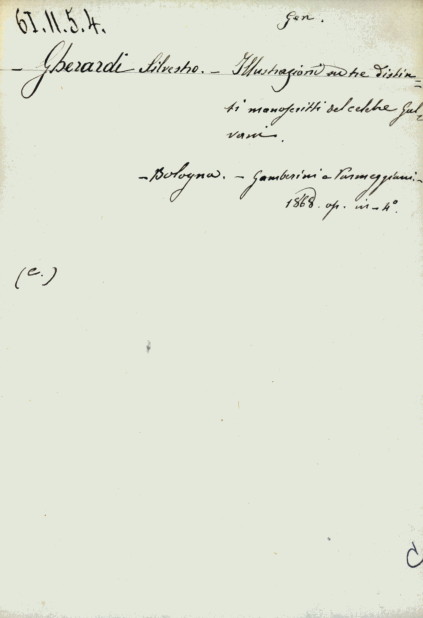 61.11.5.4.
Gen.
– Gherardi Silvestro. – Illustrazioni su tre distin=
ti manoscritti del celebre Gal=
vani.
– Bologna. – Gamberini e Parmeggiani. –
1868. op. in – 4°.
(C.)
C